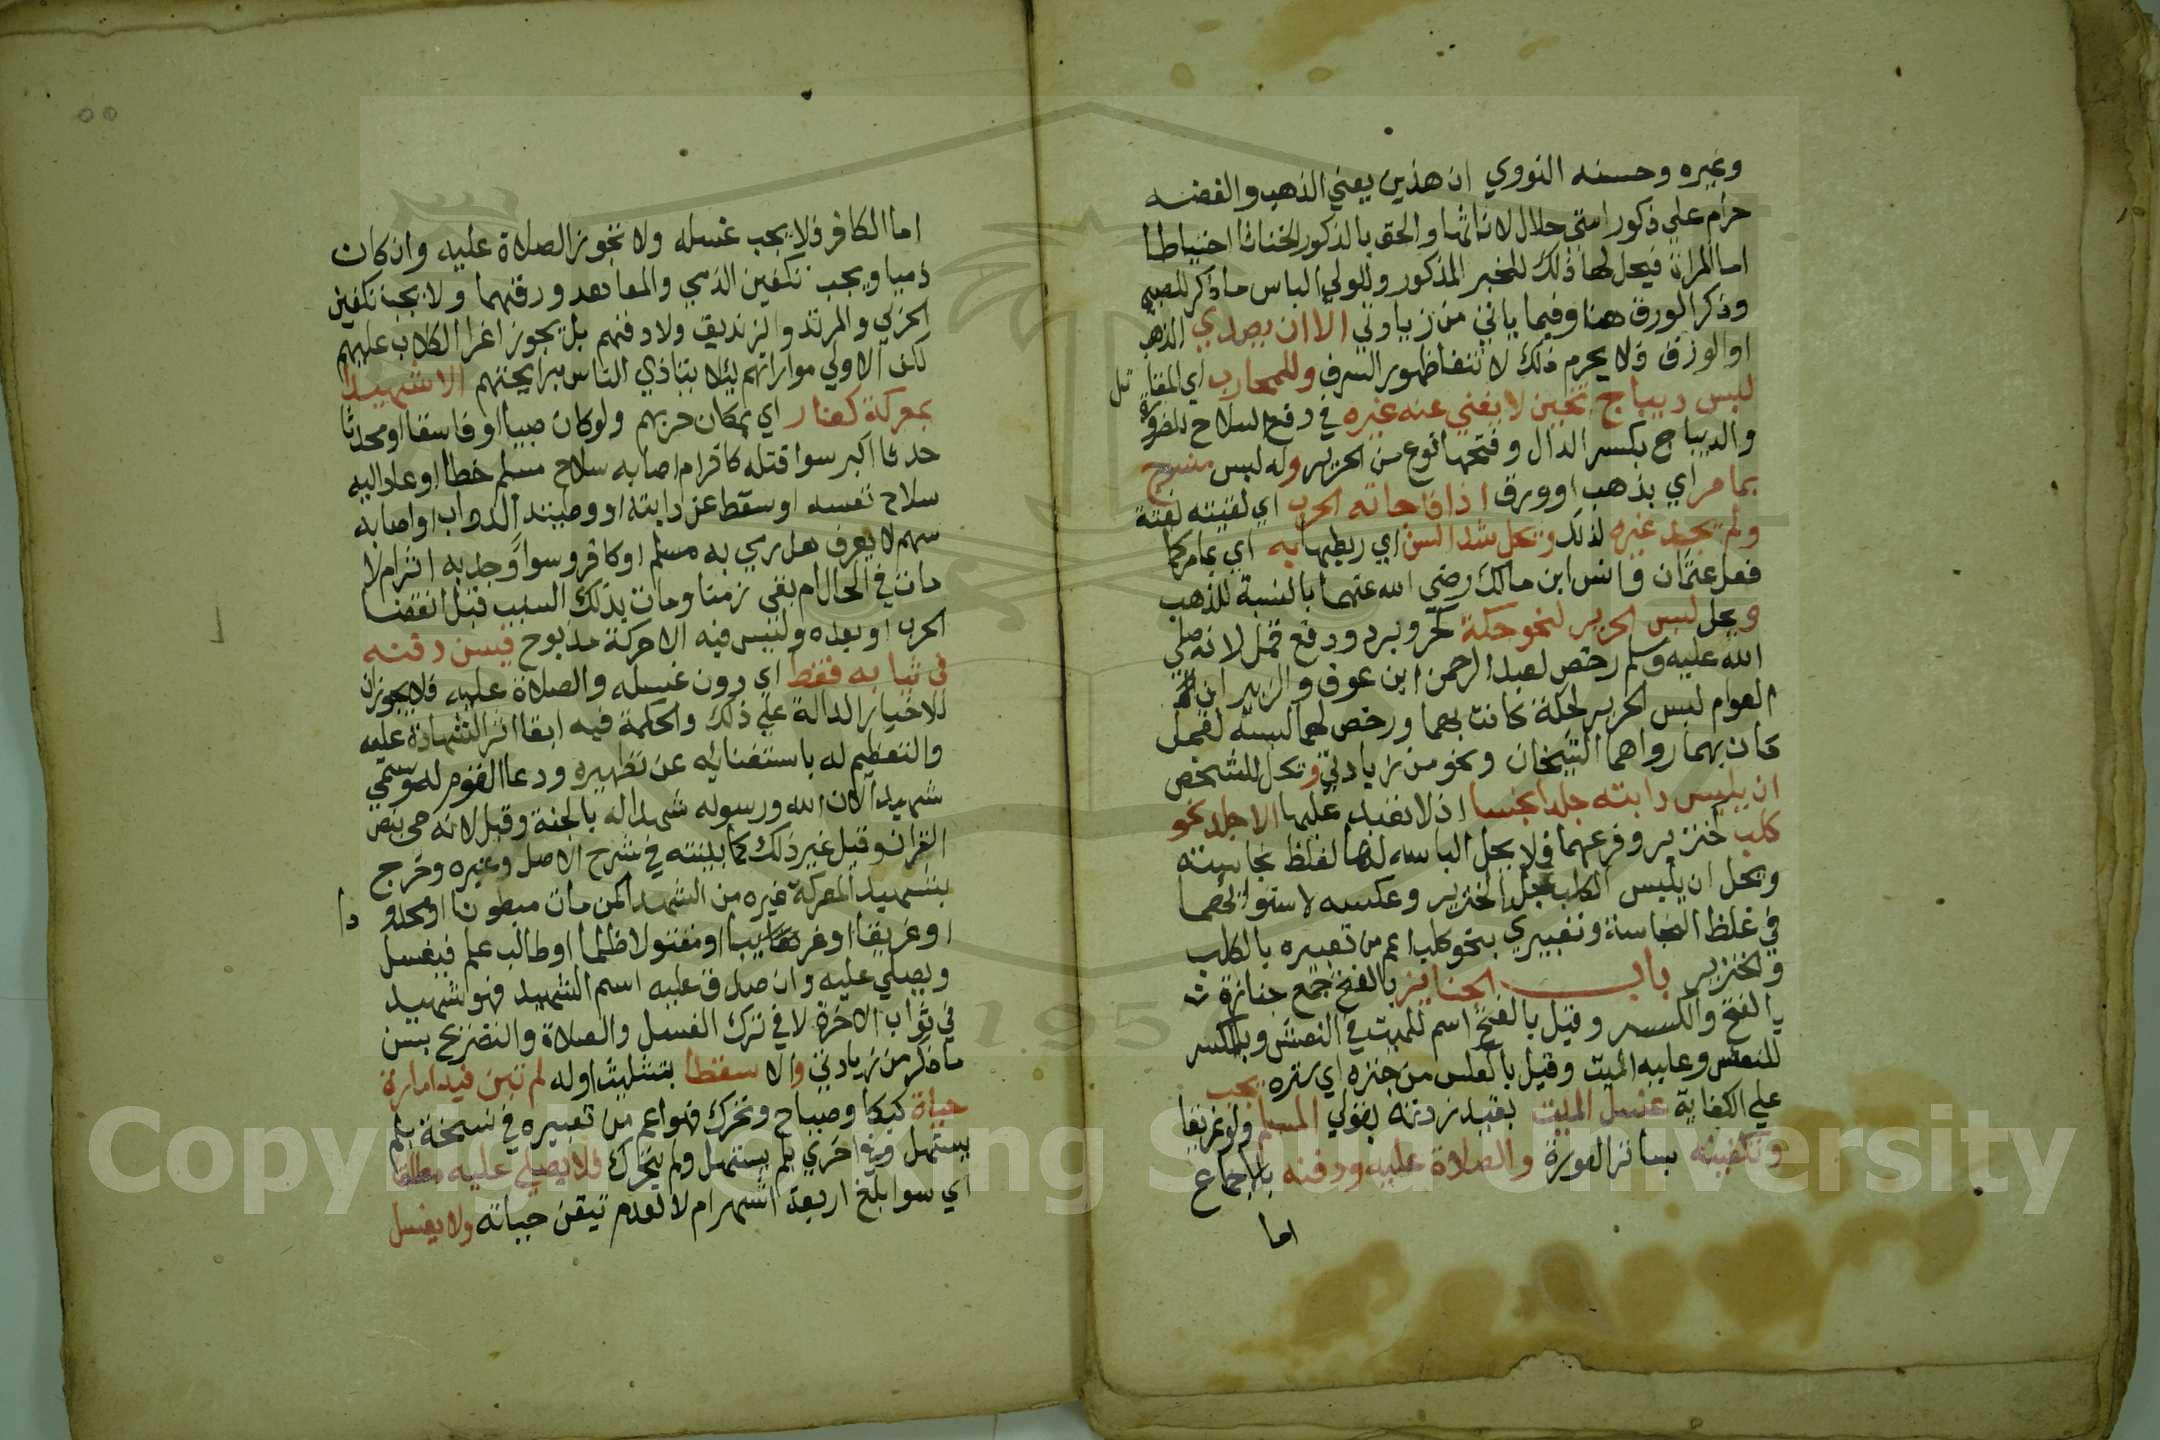 وغيره وحسنه النووي ان هذين يعني الذهب والفضه
حرام علي ذكور امتي حلال لاناثها والحق بالذكور الخناثا احتياطا
اما المراة فيحل لها ذلك للخبر المذكور وللولي الباس ما ذكر للصبي
وذكر الورق هنا وفيما ياتي من زيادتي الا ان يصدي الذهب
او الورق فلا يحرم ذلك لانتفا ظهور السرف وللمحارب اي المقاتل
لبس ديباج ثخين لا يغني عنه غيره في دفع السلاح للضرورة
والديباج بكسر الدال وفتحها نوع من الحرير وله لبس منسوج
بما مر اي بذهب او ورق اذا فاجاته الحرب اي لقيته بغتة
ولم يجد غيره لذلك وتحل شد السن اي ربطها به اي بما مر كما
فعل عثمان وانس ابن مالك رضي الله عنهما بالنسبة للذهب
ويحل لبس الحرير لنحو حكة كحر وبرد ودفع قمل لانه صلي
الله عليه وسلم رخص لعبد الرحمن ابن عوف والزبير ابن
العوام لبس الحرير لحكة كانت بهما ورخص لهما لبسه لقمل
كان بهما رواهما الشيخان ونحو من زيادتي وتحل للشخص
ان يلبس دابته جلدا نجسا اذ لا تعبد عليها الا جلد نحو
كلب خنزير وفرعهما فلا يحل الباسه لها لغلظ نجاسته
وتحل ان يلبس الكلب جلد الخنزير وعكسه لاستوائهما
في غلظ النجاسة وتعبيري بنحو كلب اعم من تعبيره بالكلب
والخنزير باب الجنايز بالفتح جمع جنازة
بالفتح والكسر وقيل بالفتح اسم للميت في النعش وبالكسر
للنعش وعليه الميت وقيل بالعكس من جنزه اي ستره يجب
علي الكفاية غسل الميت بقيد زدته بقولي المسلم ولو غريقا
وتكفينه بساتر العورة والصلاة عليه ودفنه بالاجماع
اما
اما الكافر فلا يجب غسله ولا تجوز الصلاة عليه وان كان
ذميا ويجب تكفين الذمي والمعاهد ودفنهما ولا يجب تكفين
الحربي والمرتد والزنديق ولا دفنهم بل يجوز اغرا الكلاب عليهم
لكن الاولي مواراتهم ليلا يتاذي الناس برايحتهم الا شهيدا
بمعركة كفار اي بمكان حربهم ولو كان صبيا او فاسقا او محدثا
حدثا اكبر سوا قتله كافر ام اصابه سلاح مسلم خطا او عاد اليه
سلاح نفسه او سقط عن دابته او وطيته الدواب او اصابه
سهم لا يعرف هل رمي به مسلم او كافر وسوا وجد به اثر ام لا
مات في الحال ام بقي زمنا ومات بذلك السبب قبل انقضا
الحرب او بعده وليس فيه الا حركة مذبوح فيسن دفنه
في ثيابه فقط اي دون غسله والصلاة عليه فلا يجوزان
للاخبار الدالة علي ذلك والحكمة فيه ابقا اثر الشهادة عليه
والتعظيم له باستغنائه عن تطهيره ودعا القوم له وسمي
شهيدا لان الله ورسوله شهدا له بالجنة وقيل لانه حي بنص
القران وقيل غير ذلك كما بينته في شرح الاصل وغيره وخرج
بشهيد المعركة غيره من الشهدا كمن مات مبطونا او محدو
دا
او غريقا او غريبا او مقتولا ظلما او طالب علم فيغسل
ويصلي عليه وان صدق عليه اسم الشهيد فهو شهيد
في ثواب الاخرة لا في ترك الغسل والصلاة والتصريح بسن
ما ذكر من زيادتي والا سقطا بتثليث اوله لم تبن فيه امارة
حياة كبكا وصياح وتحرك فهو اعم من تعبيره في نسخة بلم
يستهل وفي اخري بلم يستهل ولم يتحرك فلا يصلي عليه مطلقا
اي سوا بلغ اربعة اشهر ام لا لعدم تيقن حياته ولا يغسل
Copyright © King Saud University
1957